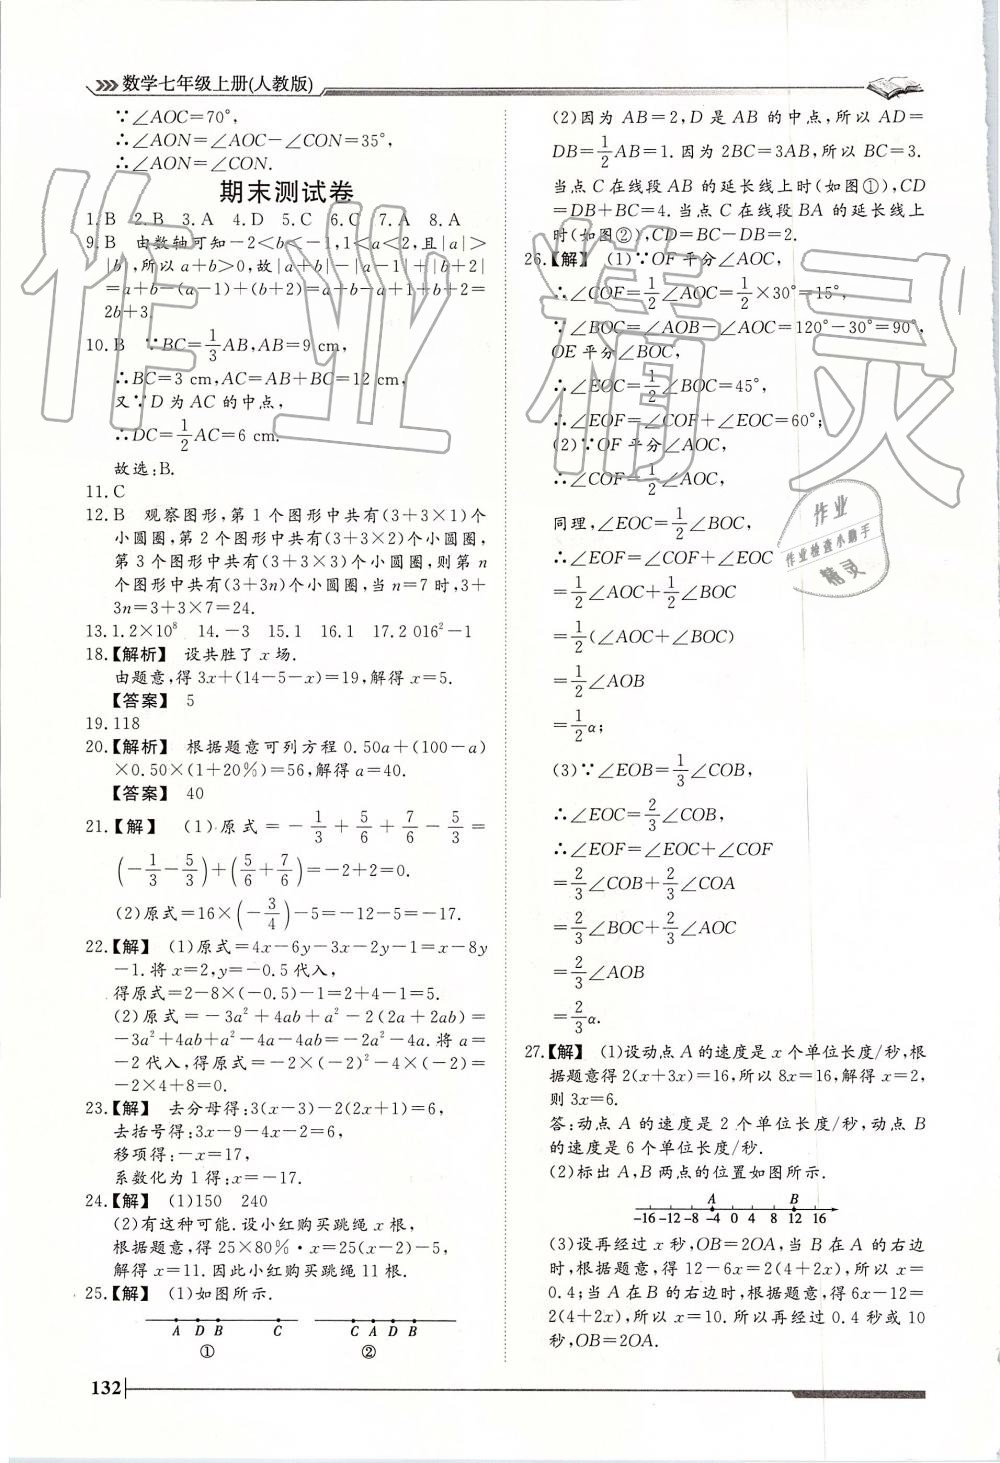 数学七年级上册(人教版)
∵∠AOC=70°,
∴∠AON=∠AOC-∠CON=35°,
∴∠AON=∠CON.
期末测试卷
1.B 2.B 3.A 4.D 5.C 6.C 7.A 8.A
9.B 由数轴可知-2<b<-1,1<a<2,且|a|>
|b|,所以a+b>0,故|a+b|-|a-1|+|b+2|
=a+b-(a-1)+(b+2)=a+b-a+1+b+2=
2b+3.
10.B ∵BC=1/3AB,AB=9 cm,
∴BC=3 cm,AC=AB+BC=12 cm,
又∵D为AC的中点,
∴DC=1/2AC=6 cm.
故选:B.
11.C
12.B 观察图形,第1个图形中共有(3+3×1)个
小圆圈,第2个图形中共有(3+3×2)个小圆圈,
第3个图形中共有(3+3×3)个小圆圈,则第n
个图形中共有(3+3n)个小圆圈,当n=7时,3+
3n=3+3×7=24.
13.1.2×10⁸ 14.-3 15.1 16.1 17.2 016²-1
18.【解析】 设共胜了x场.
由题意,得3x+(14-5-x)=19,解得x=5.
【答案】 5
19.118
20.【解析】 根据题意可列方程0.50a+(100-a)
×0.50×(1+20%)=56,解得a=40.
【答案】 40
21.【解】 (1)原式=-1/3+5/6+7/6-5/3=
(-1/3-5/3)+(5/6+7/6)=-2+2=0.
(2)原式=16×(-3/4)-5=-12-5=-17.
22.【解】 (1)原式=4x-6y-3x-2y-1=x-8y
-1.将x=2,y=-0.5代入,
得原式=2-8×(-0.5)-1=2+4-1=5.
(2)原式=-3a²+4ab+a²-2(2a+2ab)=
-3a²+4ab+a²-4a-4ab=-2a²-4a.将a=
-2代入,得原式=-2×(-2)²-4×(-2)=
-2×4+8=0.
23.【解】 去分母得:3(x-3)-2(2x+1)=6,
去括号得:3x-9-4x-2=6,
移项得:-x=17,
系数化为1得:x=-17.
24.【解】 (1)150 240
(2)有这种可能.设小红购买跳绳x根,
根据题意,得25×80%·x=25(x-2)-5,
解得x=11.因此小红购买跳绳11根.
25.【解】 (1)如图所示.
A D B C
①
C A D B
②
(2)因为AB=2,D是AB的中点,所以AD=
DB=1/2AB=1.因为2BC=3AB,所以BC=3.
当点C在线段AB的延长线上时(如图①),CD
=DB+BC=4.当点C在线段BA的延长线上
时(如图②),CD=BC-DB=2.
26.【解】 (1)∵OF平分∠AOC,
∴∠COF=1/2∠AOC=1/2×30°=15°,
∵∠BOC=∠AOB-∠AOC=120°-30°=90°,
OE平分∠BOC,
∴∠EOC=1/2∠BOC=45°,
∴∠EOF=∠COF+∠EOC=60°;
(2)∵OF平分∠AOC,
∴∠COF=1/2∠AOC,
同理,∠EOC=1/2∠BOC,
∴∠EOF=∠COF+∠EOC
=1/2∠AOC+1/2∠BOC
=1/2(∠AOC+∠BOC)
=1/2∠AOB
=1/2α;
(3)∵∠EOB=1/3∠COB,
∴∠EOC=2/3∠COB,
∴∠EOF=∠EOC+∠COF
=2/3∠COB+2/3∠COA
=2/3∠BOC+2/3∠AOC
=2/3∠AOB
=2/3α.
27.【解】 (1)设动点A的速度是x个单位长度/秒,根
据题意得2(x+3x)=16,所以8x=16,解得x=2,
则3x=6.
答:动点A的速度是2个单位长度/秒,动点B
的速度是6个单位长度/秒.
(2)标出A,B两点的位置如图所示.
A B
-16 -12 -8 -4 0 4 8 12 16
(3)设再经过x秒,OB=2OA,当B在A的右边
时,根据题意,得12-6x=2(4+2x),所以x=
0.4;当A在B的右边时,根据题意,得6x-12=
2(4+2x),所以x=10.所以再经过0.4秒或10
秒,OB=2OA.
132
作业精灵
作业
作业检查小助手
精灵